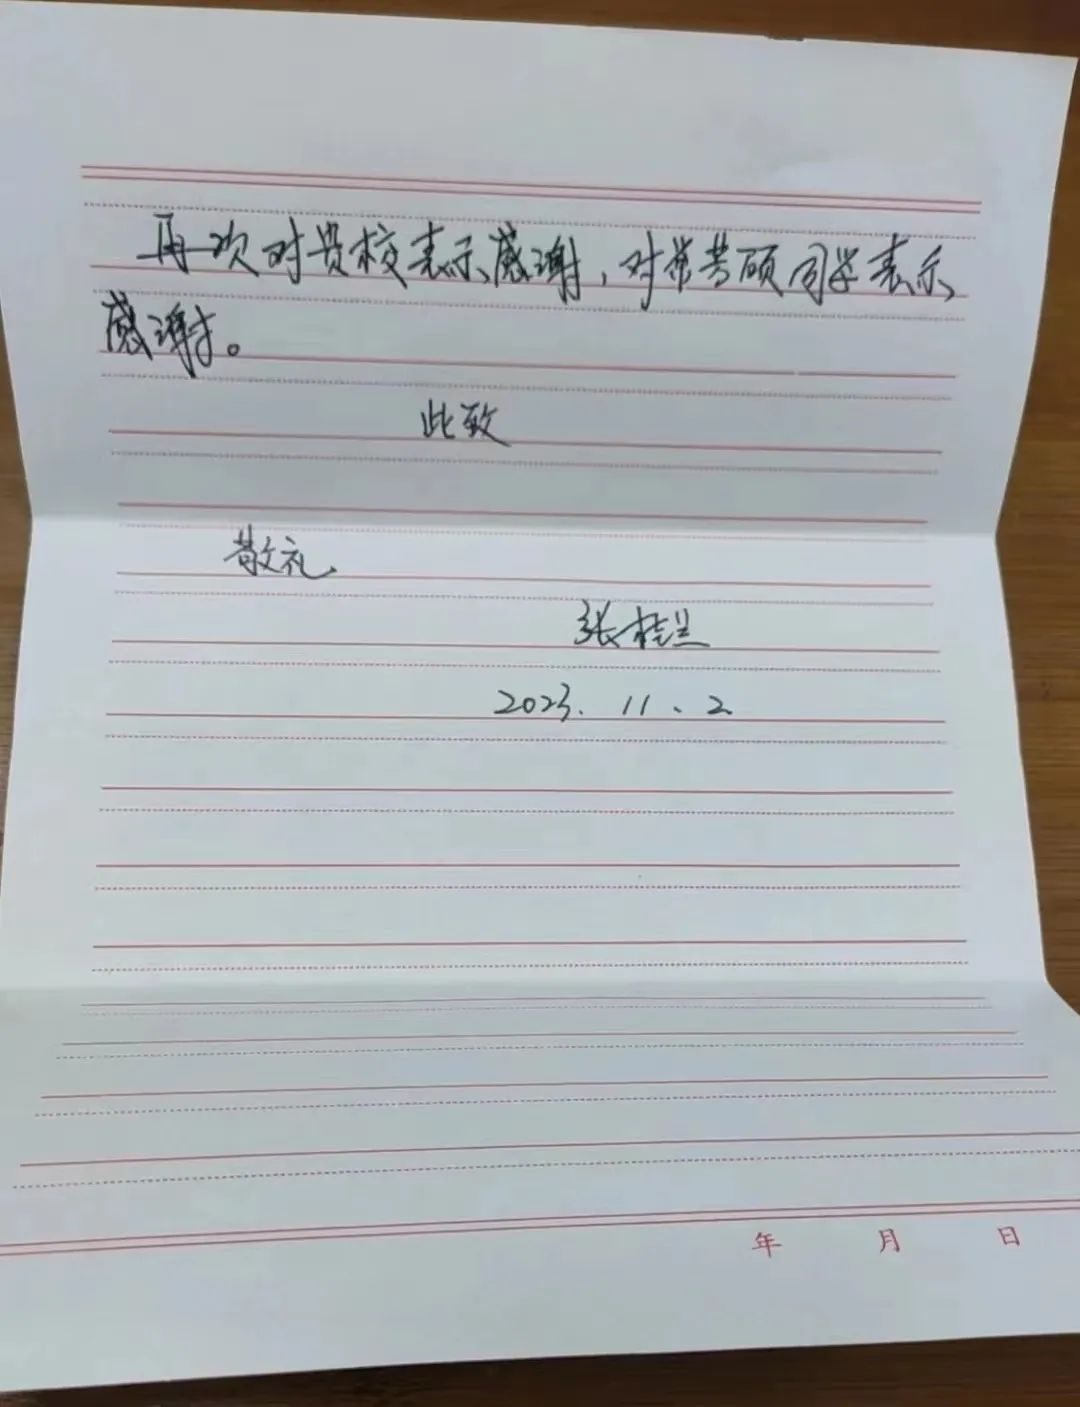 再次对贵校表示感谢，对常芸硕同学表示
感谢。
此致
敬礼
张桂兰
2023.11.2
年 月 日